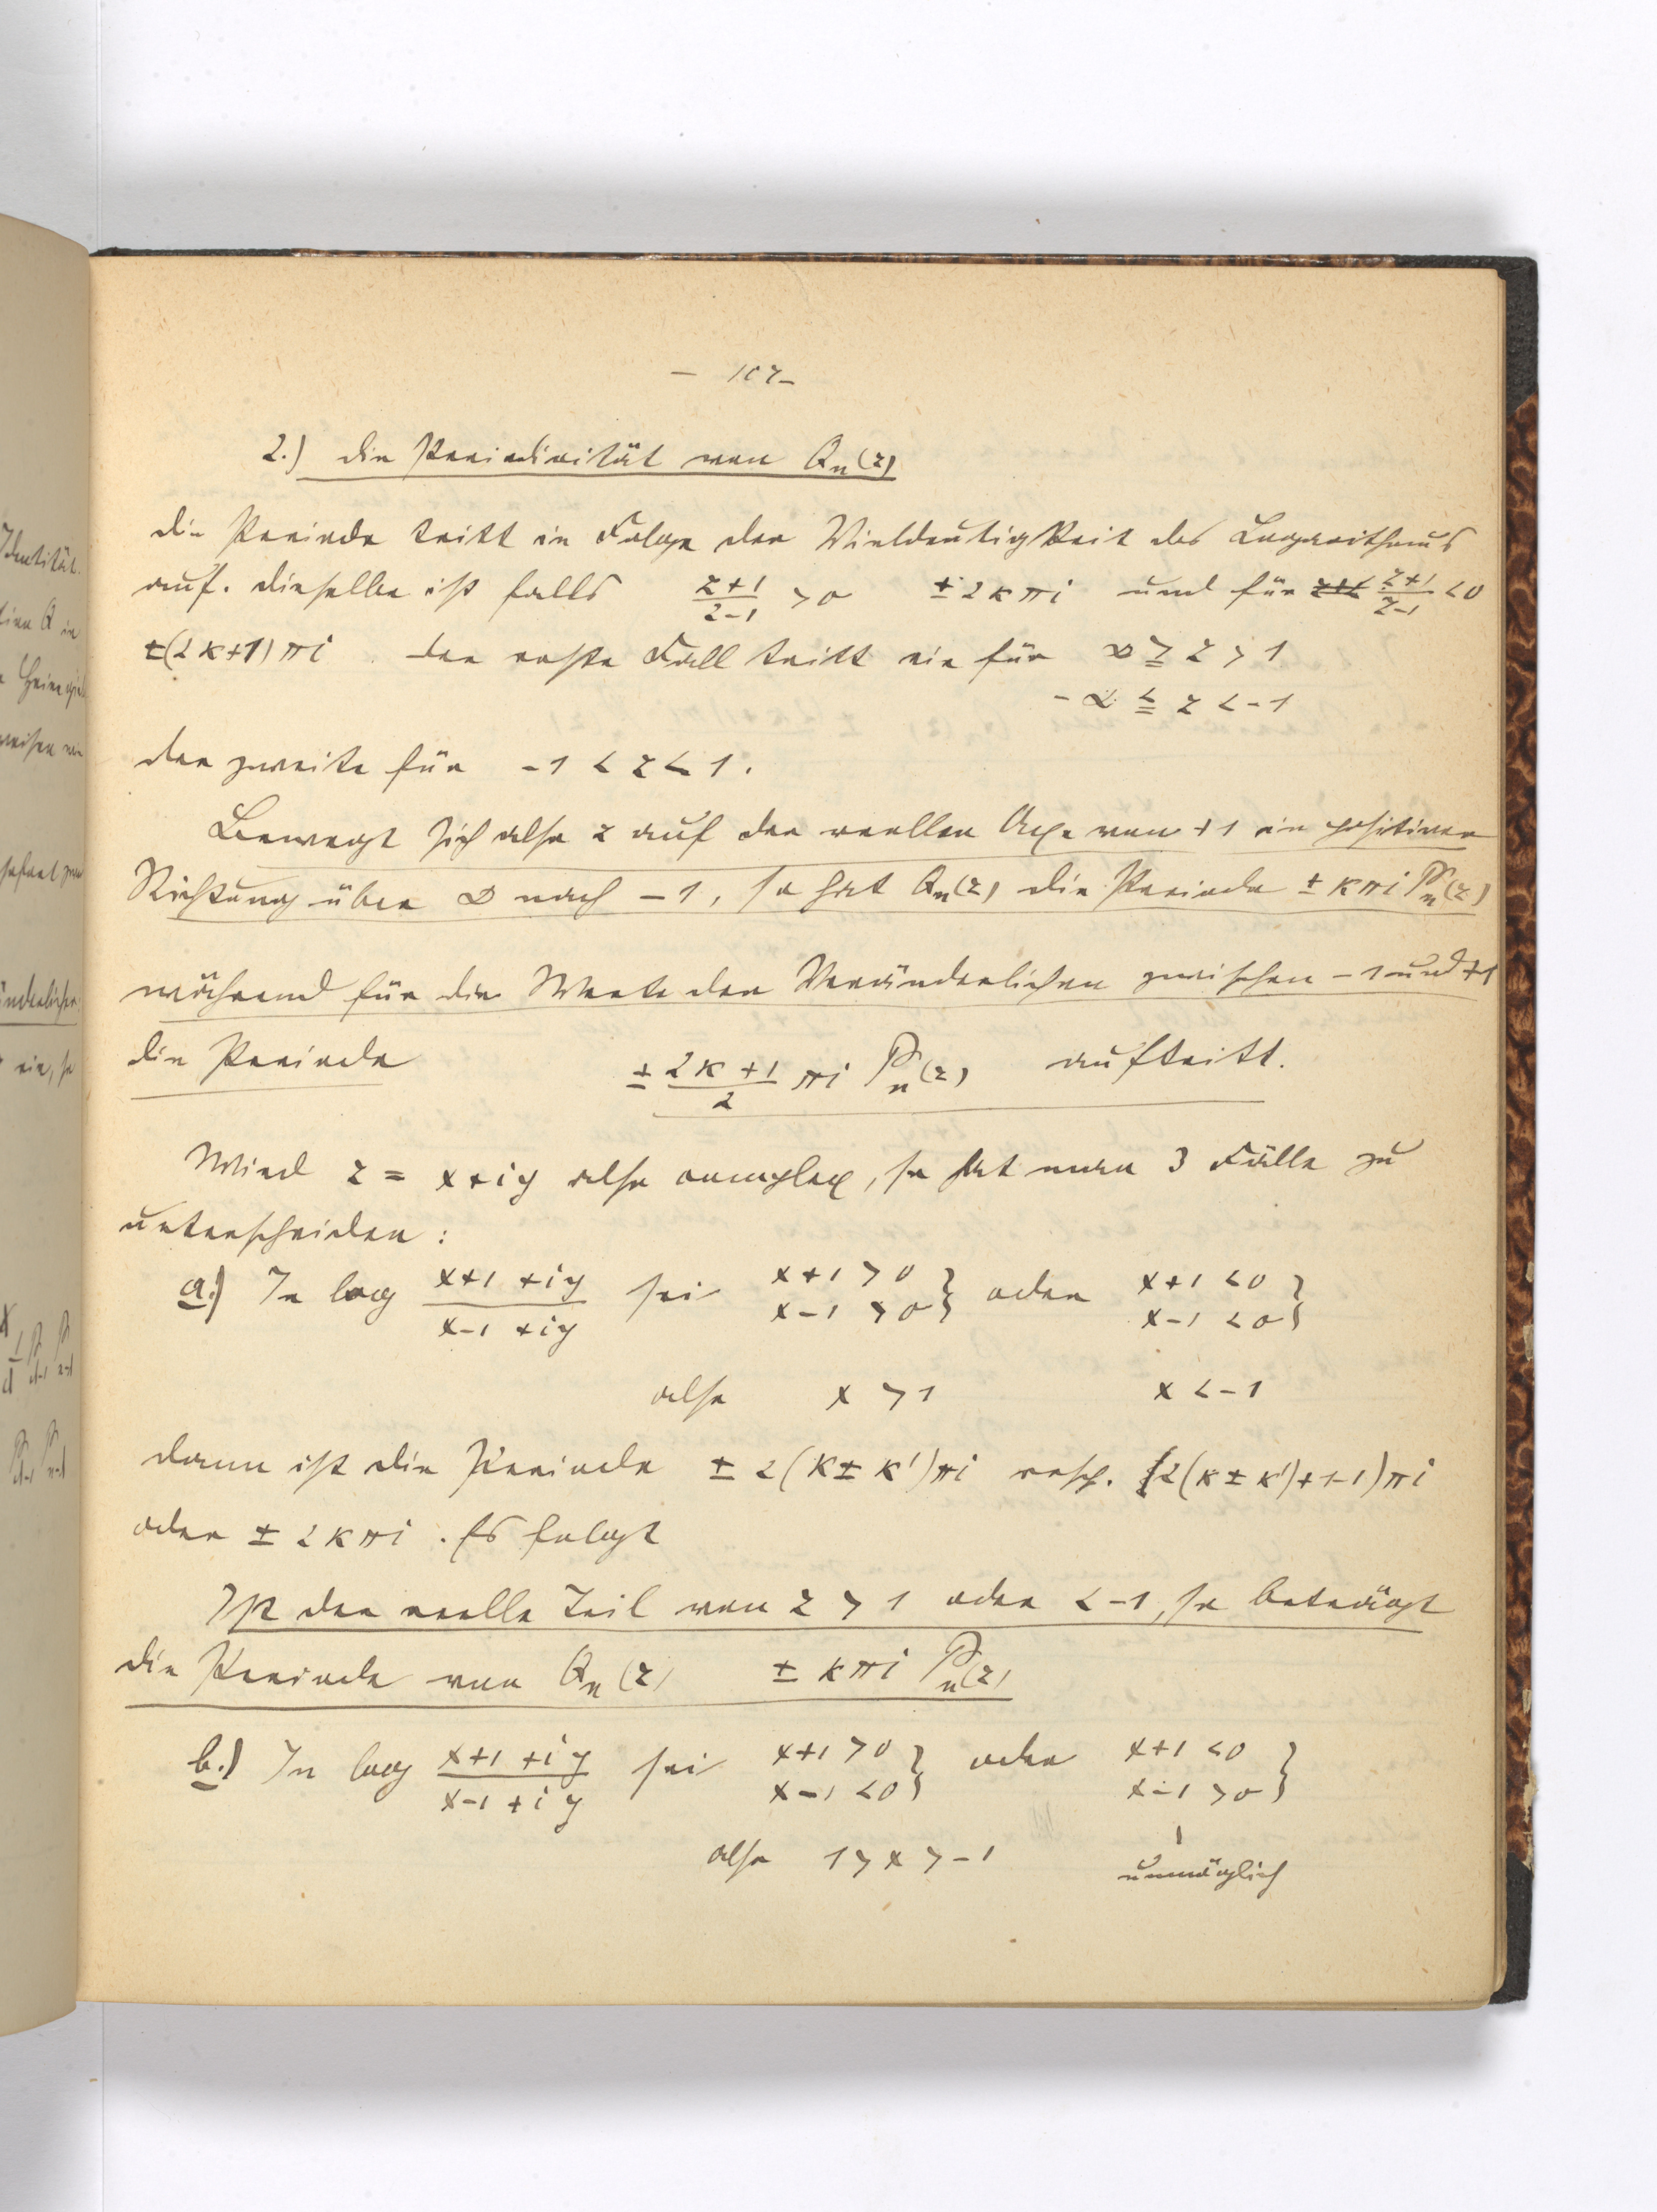 – 107 –
2.) Die Periodicität von Qₙ(z)
Die Periode tritt in Folge der Vieldeutigkeit des Logarithmus
auf. Dieselbe ist falls (z+1)/(z-1) > 0 ± 2kπi und für (z+1)/(z-1) < 0
±(2k+1)πi. Der erste Fall tritt ein für ∞ ≧ z > 1
-∞ ≦ z < -1
der zweite für -1 < z < 1.
Bewegt sich also z auf der reellen Axe von +1 in positiver
Richtung über ∞ nach -1, so hat Qₙ(z) die Periode ± kπi Pₙ(z)
während für die Werte der Veränderlichen zwischen -1 und +1
die Periode ± (2k+1)/2 πi Pₙ(z) auftritt.
Wird z = x+iy also complex, so hat man 3 Fälle zu
unterscheiden:
a.) In log (x+1+iy)/(x-1+iy) sei x+1 > 0 x-1 > 0 } oder x+1 < 0 x-1 < 0 }
also x > 1 x < -1
dann ist die Periode ± 2(k±k')πi resp. (2(k±k')+1-1)πi
oder ± 2kπi. Es folgt
Ist der reelle Teil von z > 1 oder < -1, so beträgt
die Periode von Qₙ(z) ± kπi Pₙ(z)
b.) In log (x+1+iy)/(x-1+iy) sei x+1 > 0 x-1 < 0 } oder x+1 < 0 x-1 > 0 }
also 1 > x > -1 unmöglich